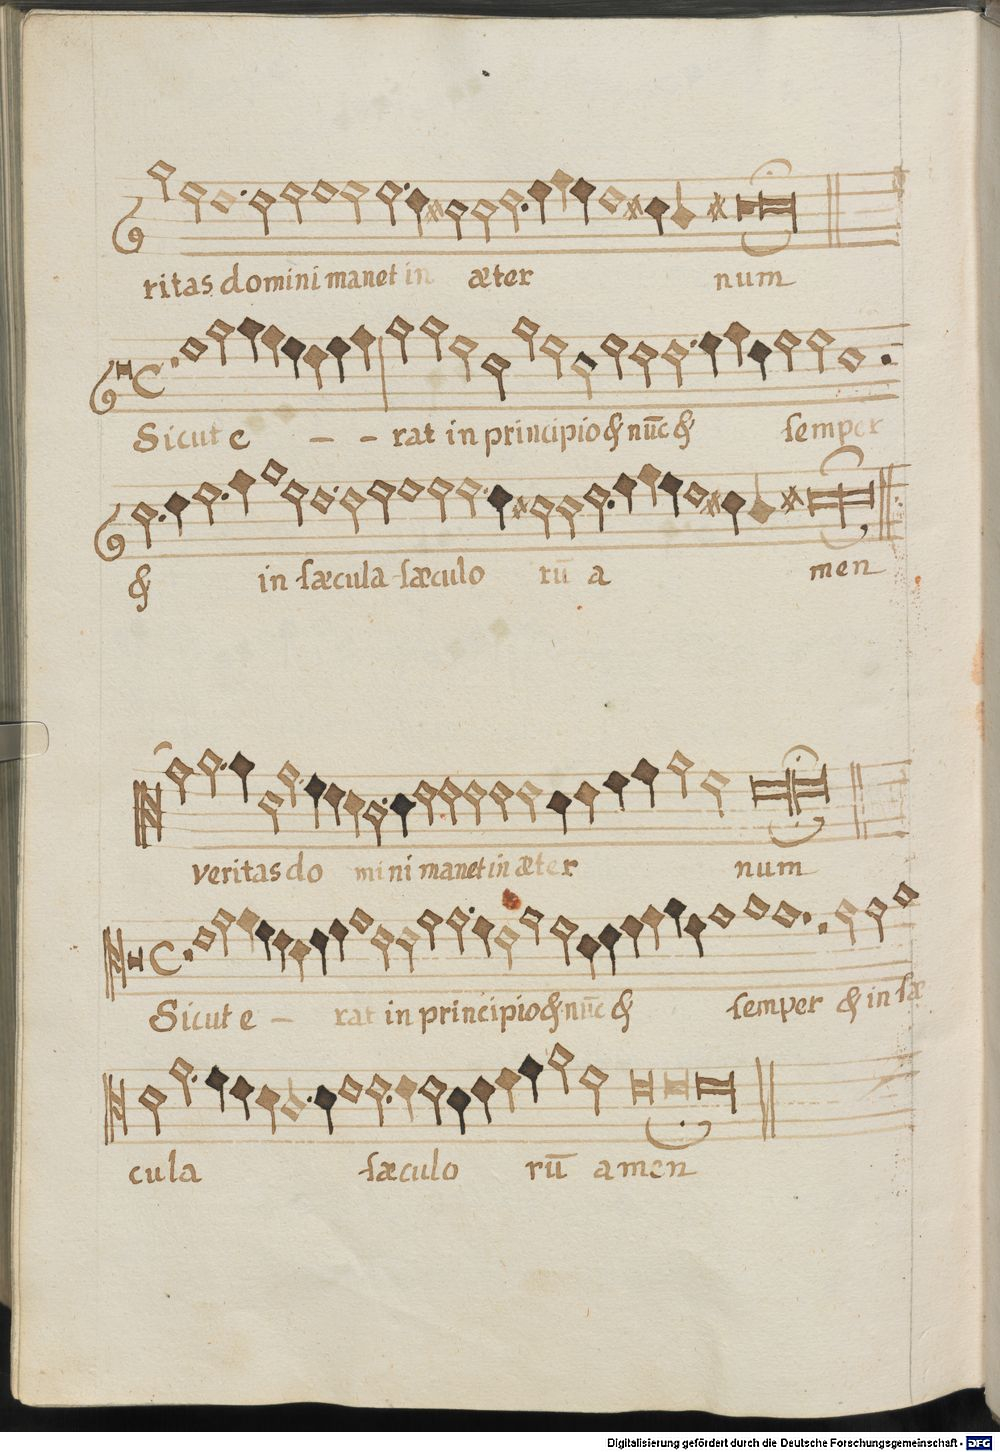 ritas domini manet in æter num
Sicut e - - rat in principio & nūc & semper
& in sæcula sæculo rū a men
veritas do mini manet in æter num
Sicut e - rat in principio & nūc & semper & in sæ
cula sæculo rū amen
Digitalisierung gefördert durch die Deutsche Forschungsgemeinschaft - DFG